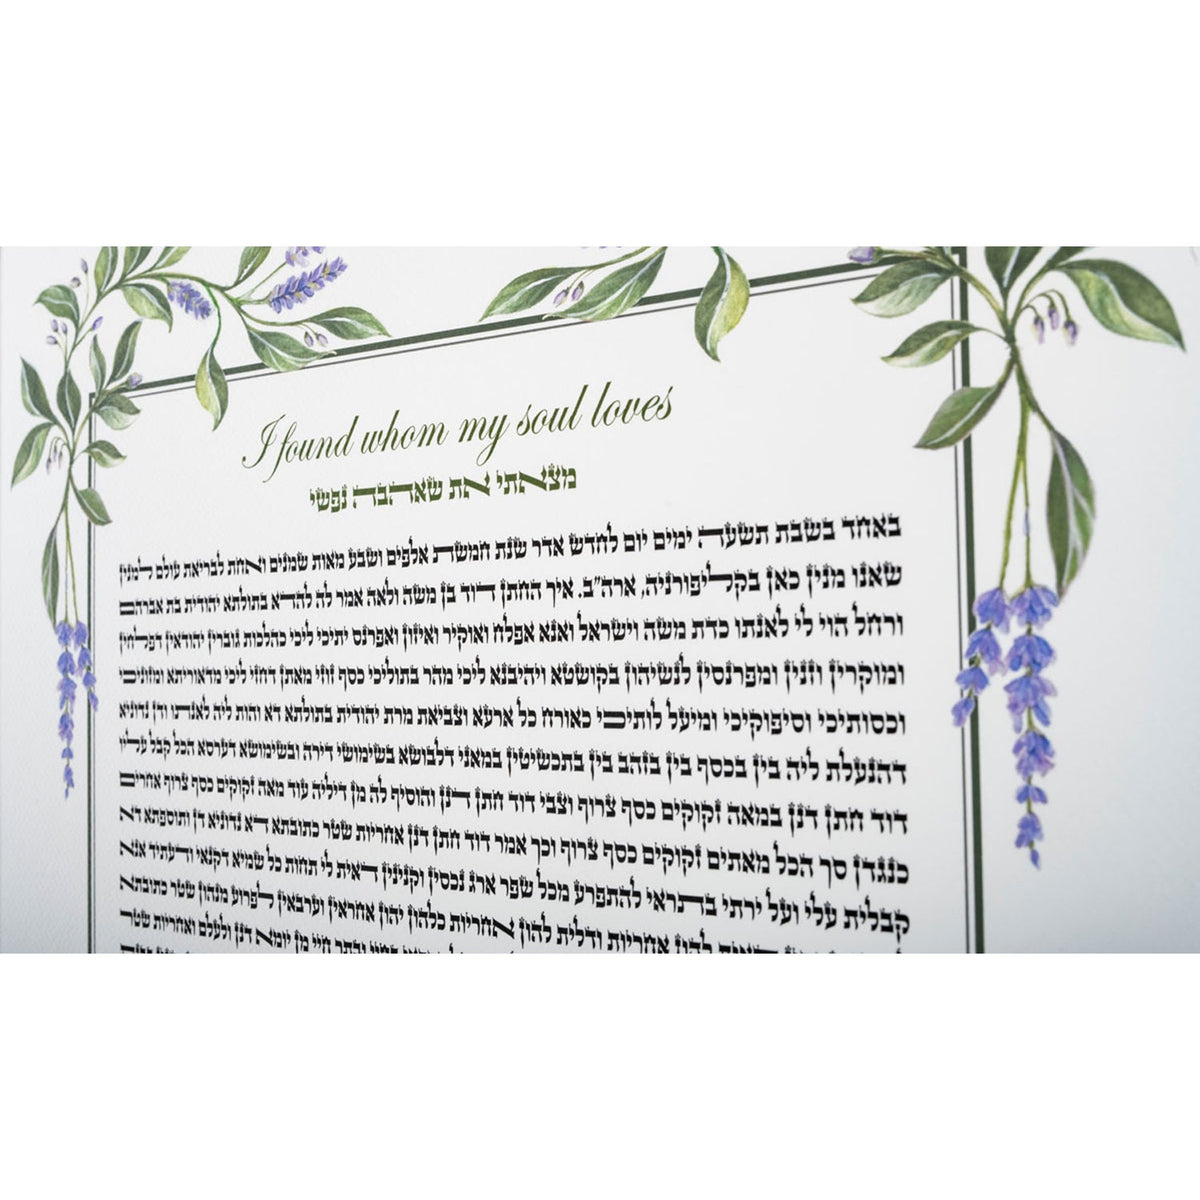 I found whom my soul loves
מצאתי את שאהבה נפשי
באחד בשבת תשעה ימים יום לחדש אדר שנת חמשת אלפים ושבע מאות שמנים ואחת לבריאת עולם למנין
שאנו מנין כאן בקליפורניה, ארה״ב. איך החתן דוד בן משה ולאה אמר לה להדא בתולתא יהודית בת אברהם
ורחל הוי לי לאנתו כדת משה וישראל ואנא אפלח ואוקיר ואיזון ואפרנס יתיכי ליכי כהלכות גוברין יהודאין דפלחין
ומוקרין וזנין ומפרנסין לנשיהון בקושטא ויהיבנא ליכי מהר בתוליכי כסף זוזי מאתן דחזי ליכי מדאוריתא ומזוניכי
וכסותיכי וסיפוקיכי ומיעל לותיכי כאורח כל ארעא וצביאת מרת יהודית בתולתא דא והות ליה לאנתו ודן נדוניא
דהנעלת ליה בין בכסף בין בזהב בין בתכשיטין במאני דלבושא בשימושי דירה ובשימושא דערסא הכל קבל עליו
דוד חתן דנן במאה זקוקים כסף צרוף וצבי דוד חתן דנן והוסיף לה מן דיליה עוד מאה זקוקים כסף צרוף אחרים
כנגדן סך הכל מאתים זקוקים כסף צרוף וכך אמר דוד חתן דנן אחריות שטר כתובתא דא נדוניא דן ותוספתא דא
קבלית עלי ועל ירתי בתראי להתפרע מכל שפר ארג נכסין וקנינין דאית לי תחות כל שמיא דקנאי ודעתיד אנא
למקנא נכסין דאית להון אחריות ודלית להון אחריות כלהון יהון אחראין וערבאין לפרוע מנהון שטר כתובתא
בחיי ובתר חיי מן יומא דנן ולעלם ואחריות שטר